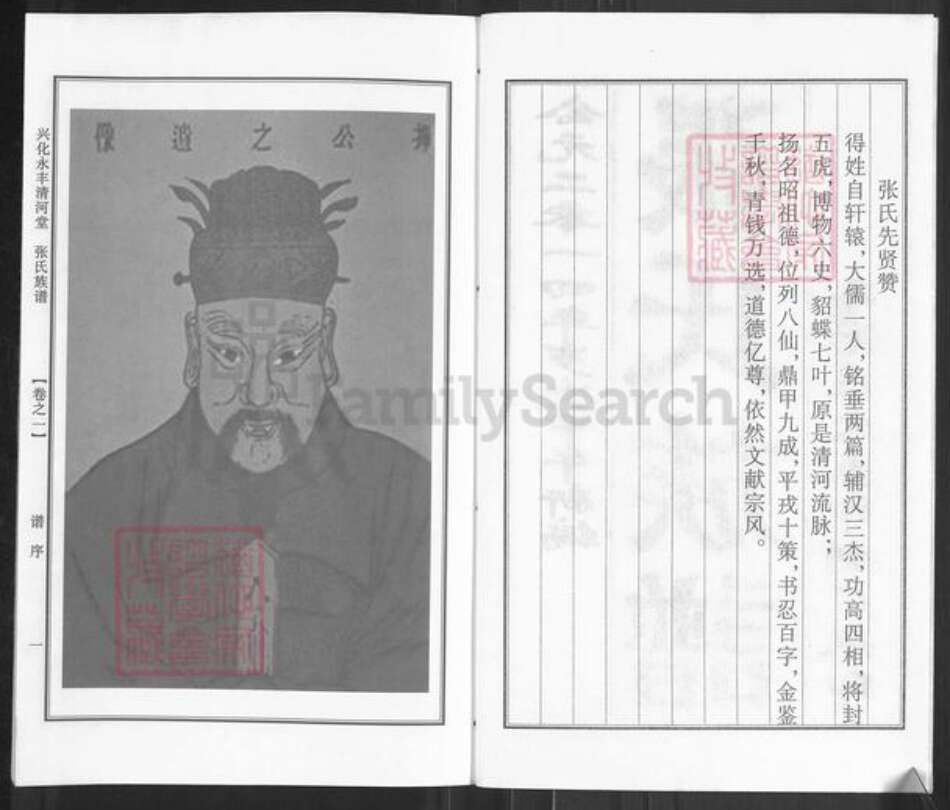 张氏先贤赞
得姓自轩辕，大儒一人，铭垂两篇，辅汉三杰，功高四相，将封
五虎，博物六史，貂蝉七叶，原是清河流脉；
扬名昭祖德，位列八仙，鼎甲九成，平戎十策，书忍百字，金鉴
千秋，青钱万选，道德亿尊，依然文献宗风。
挥公之遗像
兴化永丰清河堂 张氏族谱
【卷之一】
谱序
一
FamilySearch